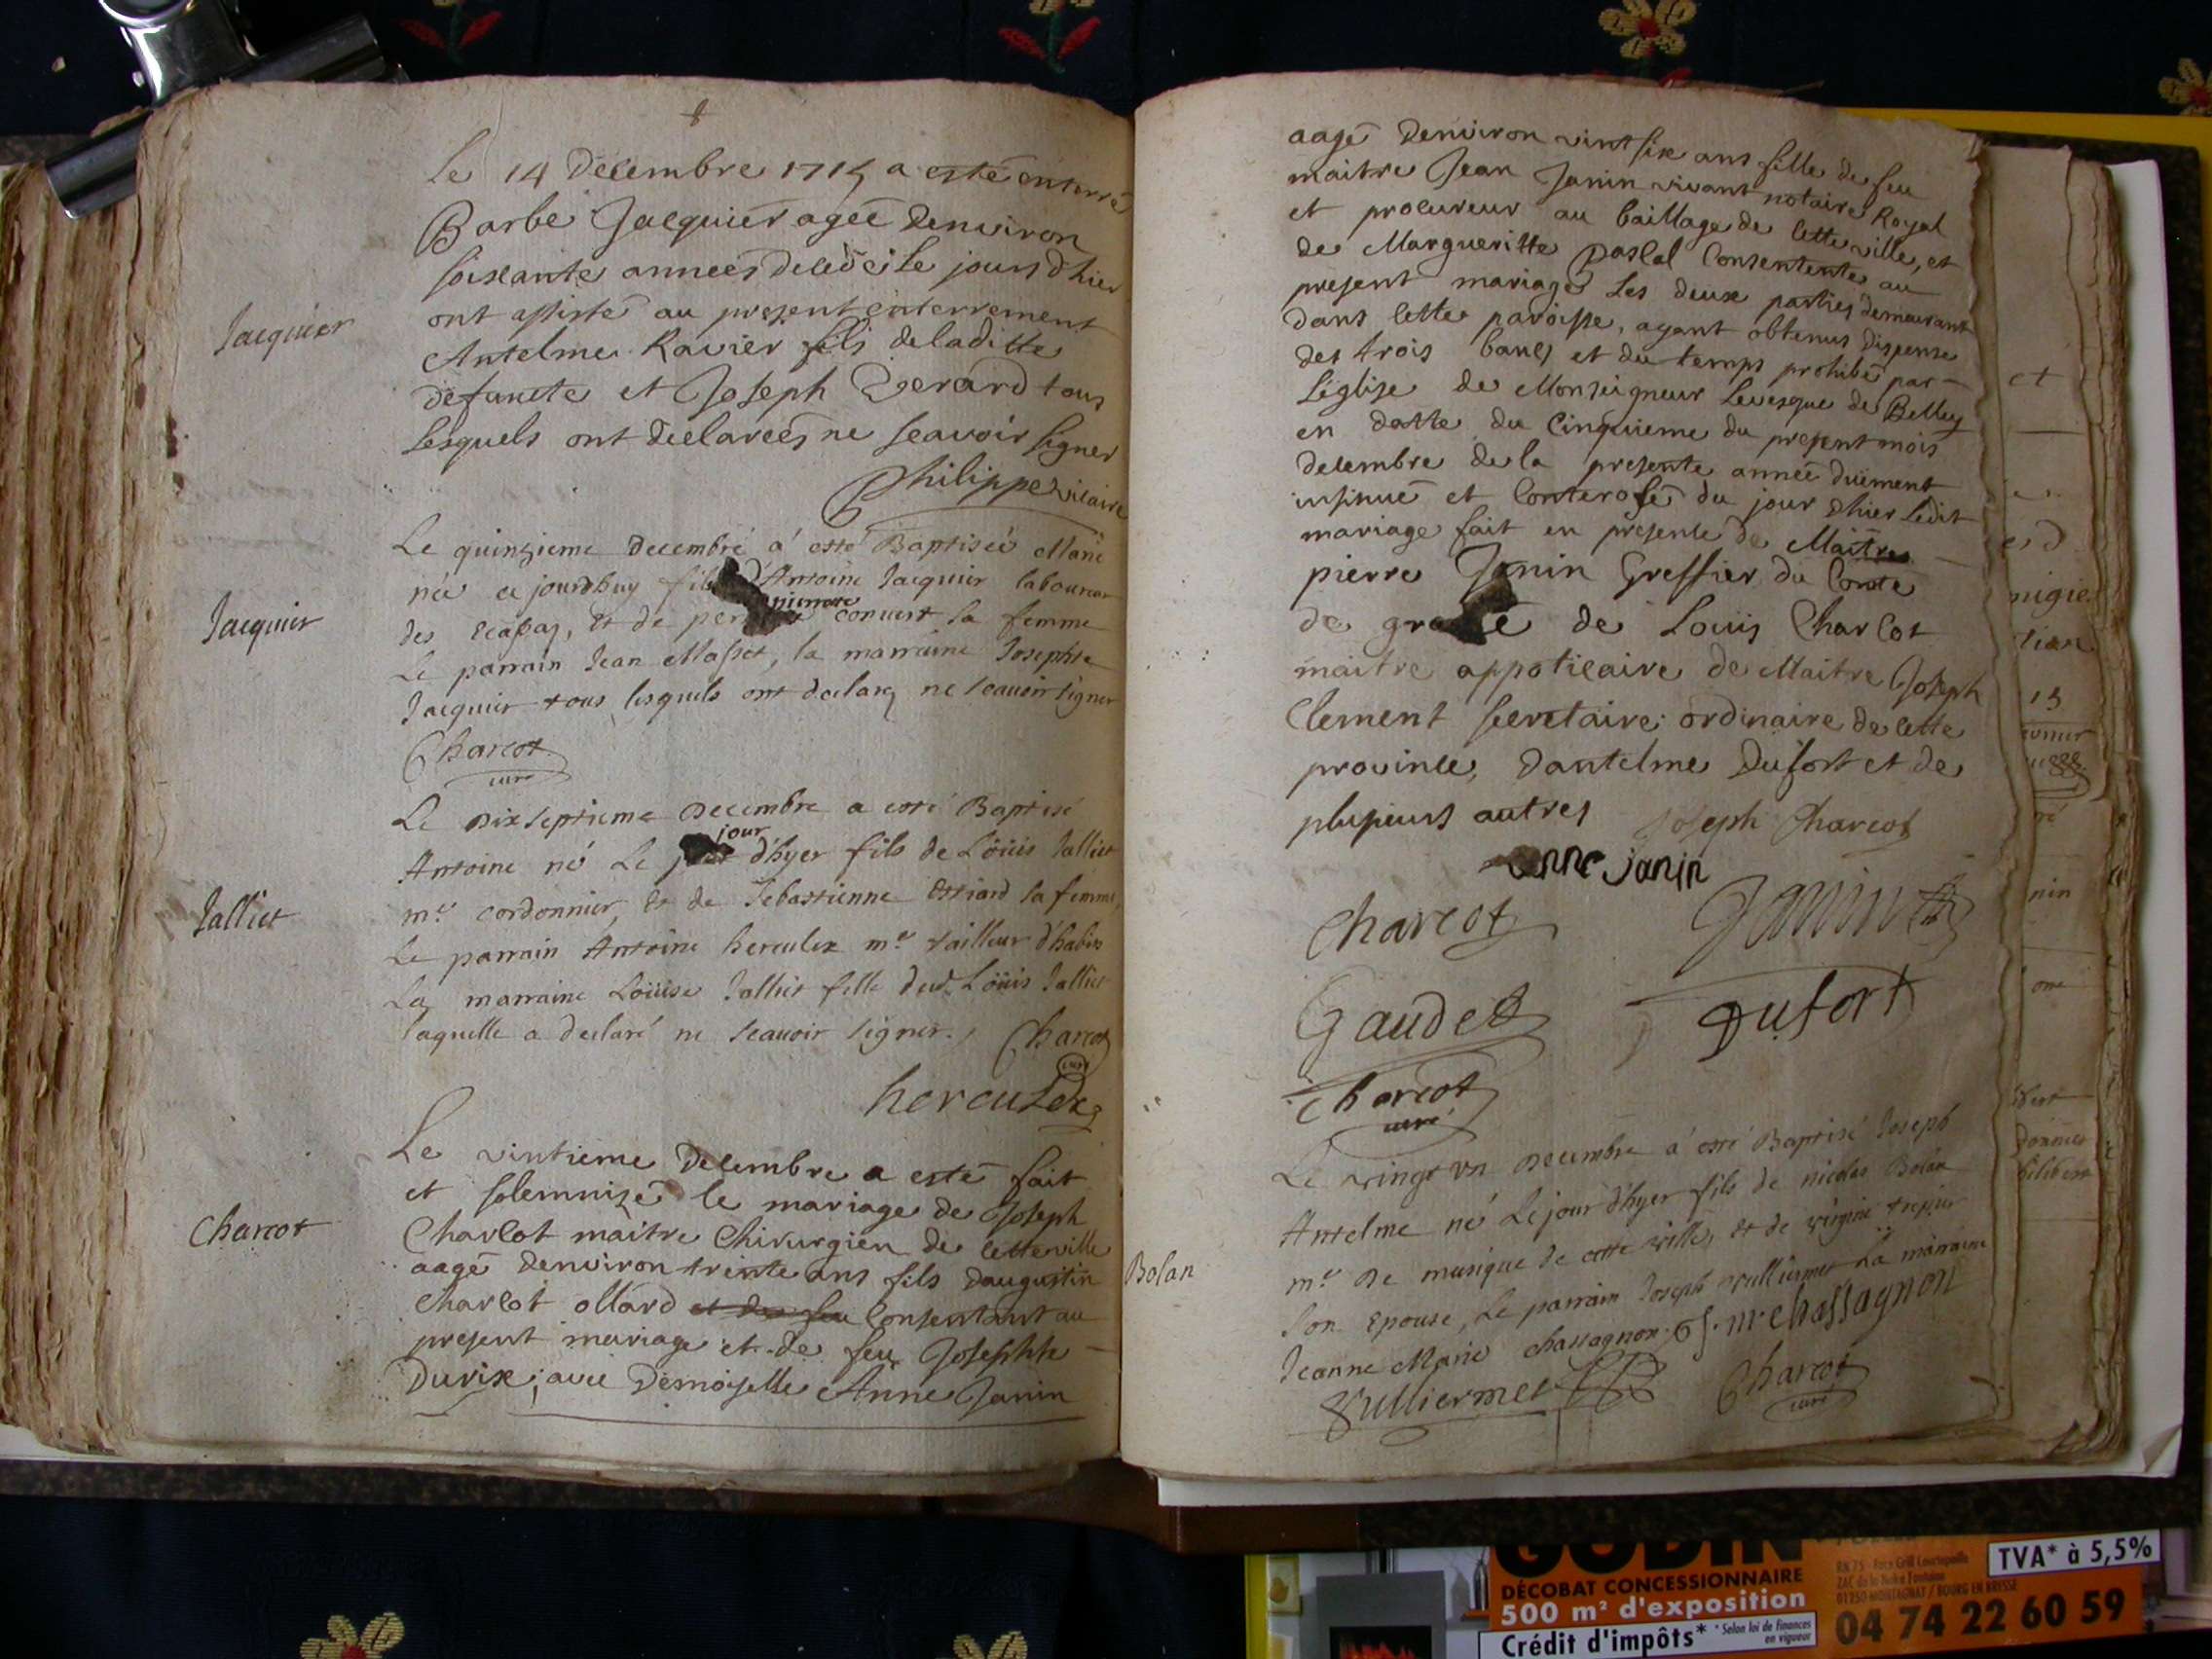 Le 14 decembre 1715 a esté enterré
Barbe Jacquier agée denviron
soixante années decedée le jours d'hier
ont assisté au present enterrement
Jacquier
Antelme Ravier fils de laditte
defuncte et Joseph Gerard tous
lesquels ont declareés ne scavoir signer
Philippe vicaire
Le quinzieme decembre a esté Baptisée Marie
née ce jourdhuy d'Antoine Jacquier laboureur
Jacquier
des et de pernette convert sa femme
Le parrain Jean Masset, la marraine Josephte
Jacquier tous lesquels ont declarez ne scauoir signer
Charcot
curé
Le dix septieme decembre a esté Baptisé
Antoine né Le jour d'hyer fils de Loüis Jalliet
Jalliet
me cordonnier, et de Sebastienne Estiard sa femme,
Le parrain Antoine herculex me tailleur d'habits
La marraine Loüise Jalliet fille dud. Loüis Jalliet
laquelle a declaré ne scauoir signer. Charcot
curé
herculex
Le vintieme decembre a esté fait
et solemnizé le mariage de Joseph
Charcot
Charcot maitre chirurgien de cette ville
aagé denviron trente ans fils daugustin
charcot ollard et de feu consentant au
present mariage et de feu Josephte
Durix, avec demoiselle Anne Janin
aagé denviron vint six ans fille de feu
maitre Jean Janin vivant notaire Royal
et procureur au baillage de cette ville, et
de Margueritte Pascal consentente au
present mariage les deux parties demeurant
dans cette paroisse, ayant obtenus dispense
des trois bancs et du temps prohibé par
L'église de Monseigneur Levesque de Belley
en datte du cinquieme du present mois
decembre de la presente année düement
insinué et controllé du jour d'hier ledit
mariage fait en presence de Maitre
pierre Janin Greffier du Comté
de de Louis Charcot
maitre appoticaire de Maitre Joseph
Clement secretaire ordinaire de cette
province, dantelme Dufort et de
plusieurs autres Joseph Charcot
anne janin
Charcot Janin
Gaudet Dufort
Charcot
curé
Le vingt vn decembre a esté Baptisé Joseph
Antelme né Le jour d'hyer fils de nicolas Bolan
Bolan
me de musique de cette ville, et de virginie
son Epouse, Le parrain Joseph vulliermet La marraine
Jeanne Marie chassagnon. j. m. chassagnon
Vulliermet Charcot
curé
et
15
nin
GODIN
DÉCOBAT CONCESSIONNAIRE
500 m² d'exposition
Crédit d'impôts* *Selon loi de finances
en vigueur
TVA* à 5,5%
04 74 22 60 59